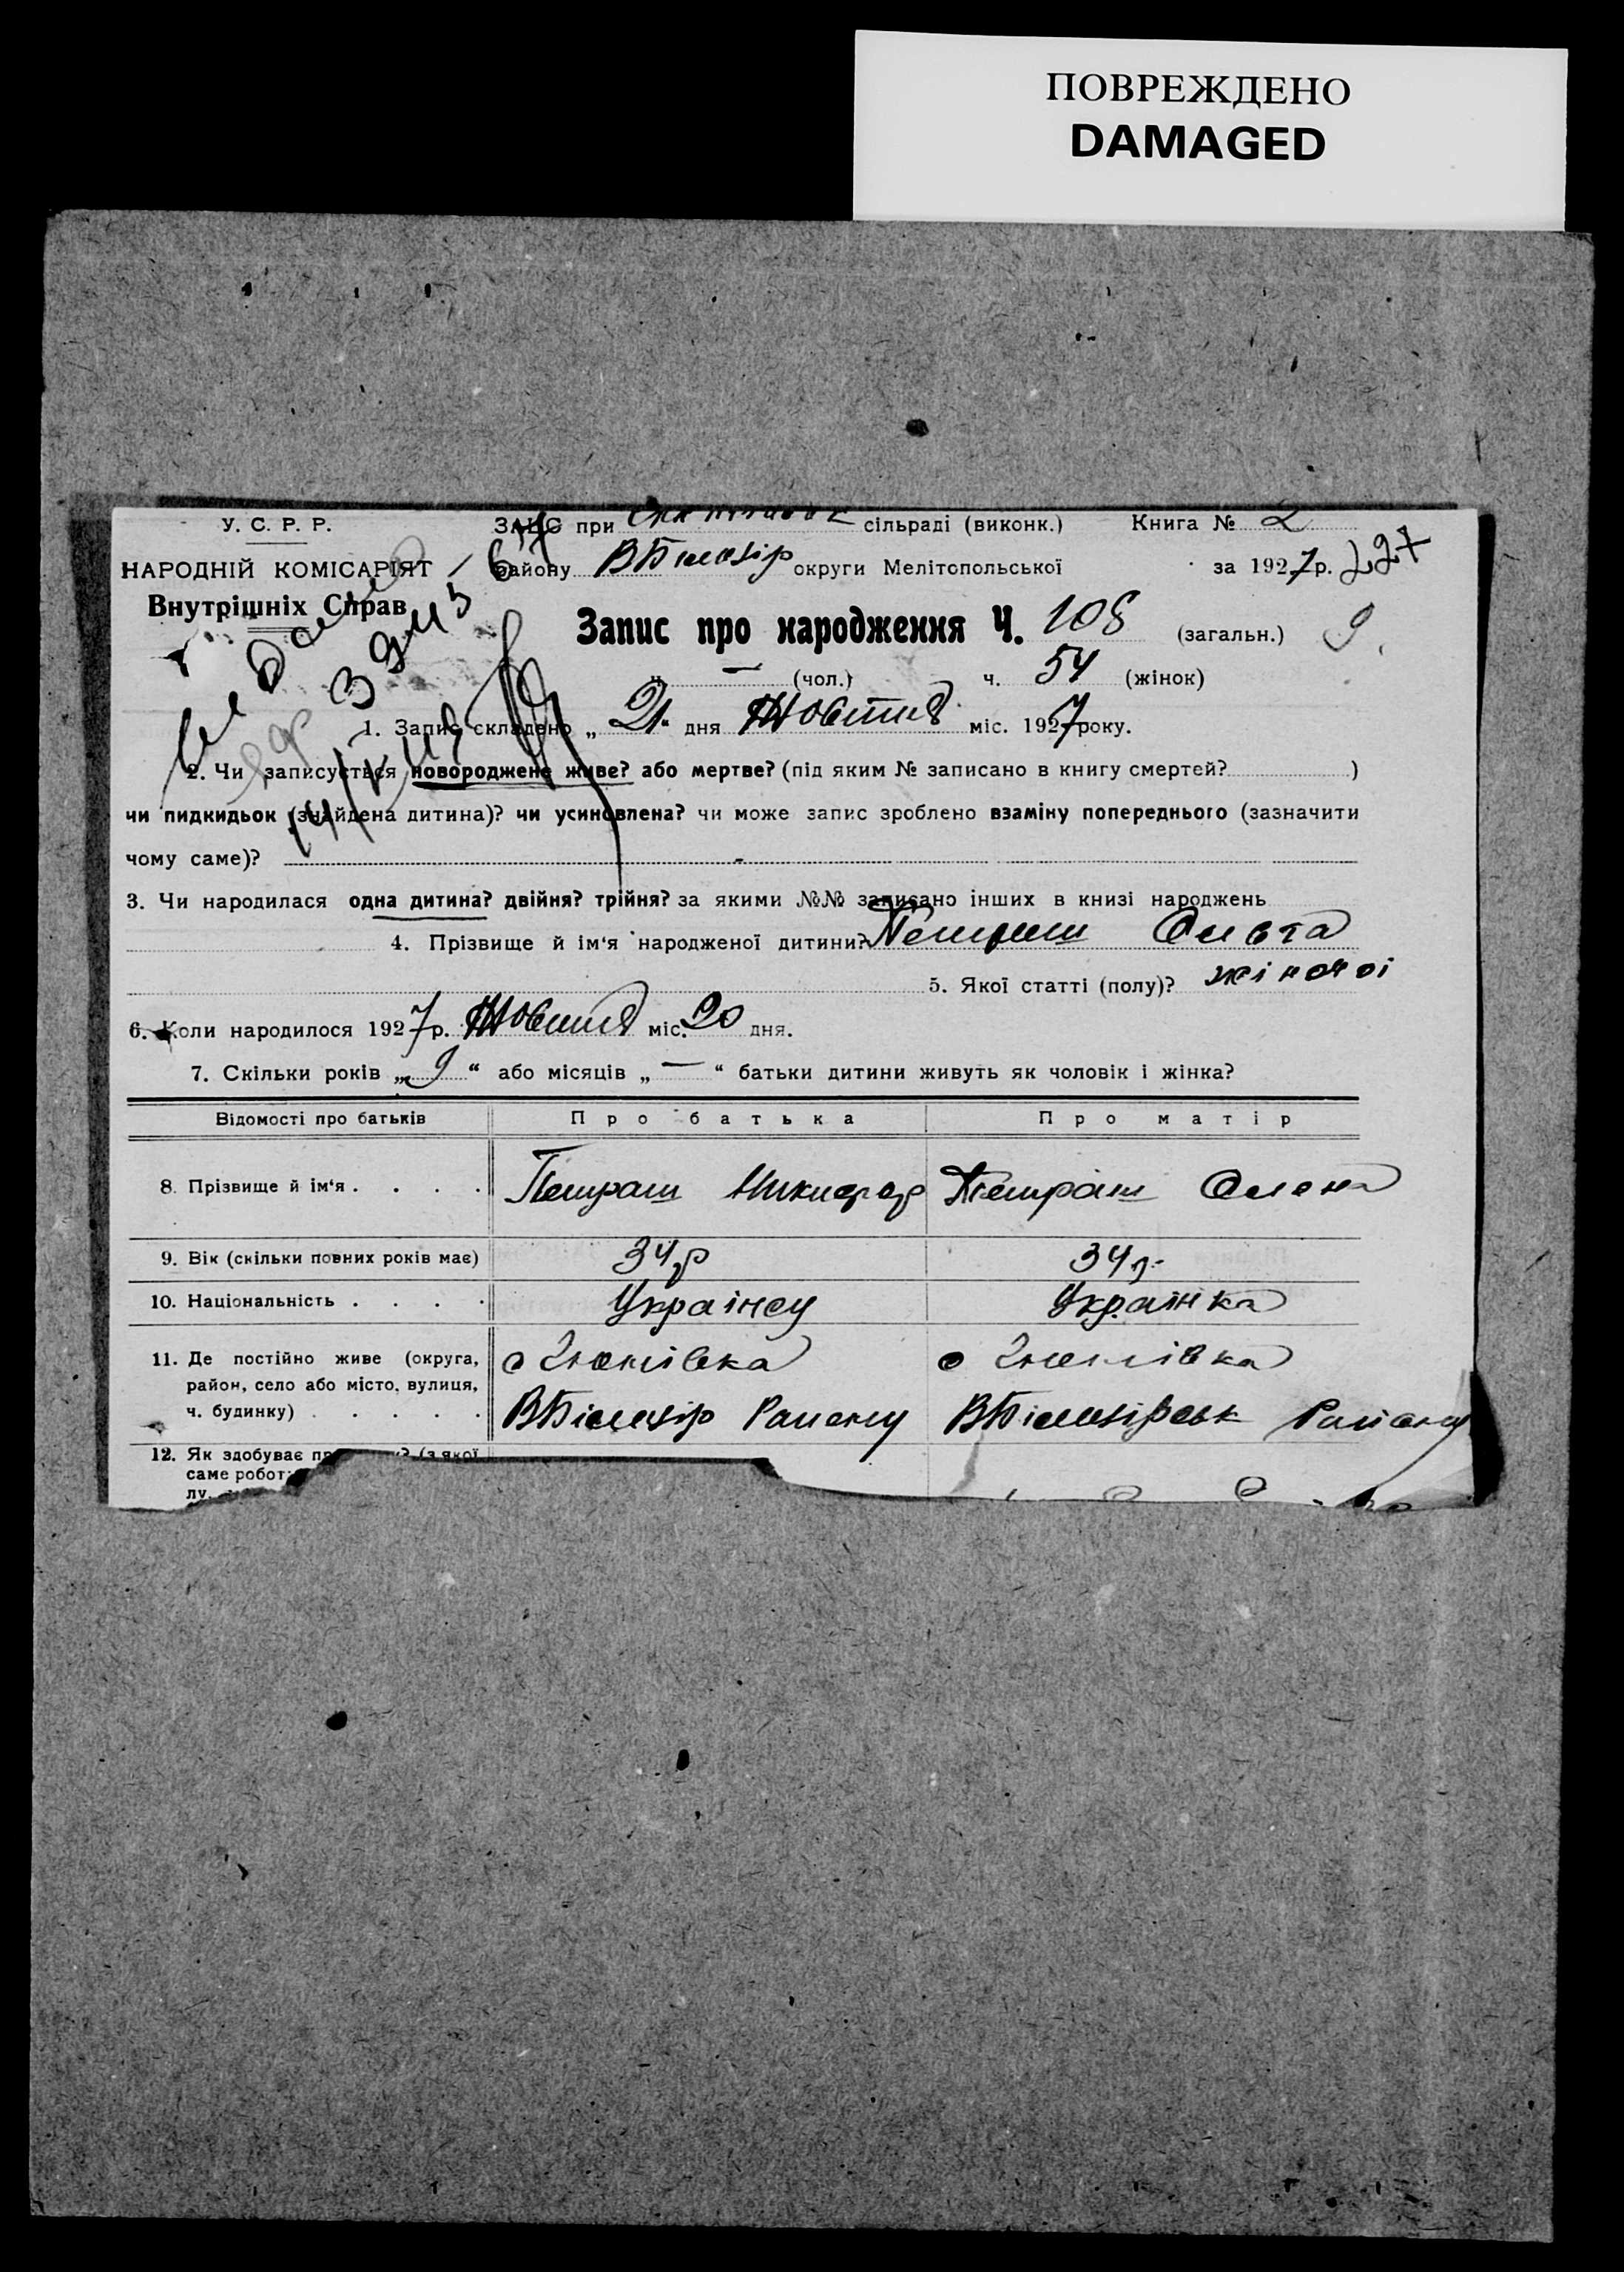 ПОВРЕЖДЕНО
DAMAGED
У. С. Р. Р.
НАРОДНІЙ КОМІСАРІЯТ
Внутрішніх Справ
ЗАЦС при сільраді (виконк.) Книга № 2
району ВБілозір округи Мелітопольської за 1927 р. 227
Запис про народження Ч. 108 (загальн.) 9
ч. — (чол.) ч. 54 (жінок)
1. Запис складено „21“ дня Жовтня міс. 1927 року.
2. Чи записується новороджене живе? або мертве? (під яким № записано в книгу смертей? )
чи пидкидьок (знайдена дитина)? чи усиновлена? чи може запис зроблено взаміну попереднього (зазначити
чому саме)? -
3. Чи народилася одна дитина? двійня? трійня? за якими №№ записано інших в книзі народжень
4. Прізвище й ім'я народженої дитини? Петраш
5. Якої статті (полу)? жіночоі
6. Коли народилося 1927 р. Жовтня міс. 20 дня.
7. Скільки років „9“ або місяців „—“ батьки дитини живуть як чоловік і жінка?
Відомості про батьків Про батька Про матір
8. Прізвище й ім'я . . . . Петраш Никифор Петраш Олена
9. Вік (скільки повних років має) 34 р 34 р.
10. Національність . . . . Українец Українка
11. Де постійно живе (округа,
район, село або місто, вулиця,
ч. будинку) . . . . .
ВБілозір Району ВБілозірськ Району
12. Як здобуває
саме робот
лу.